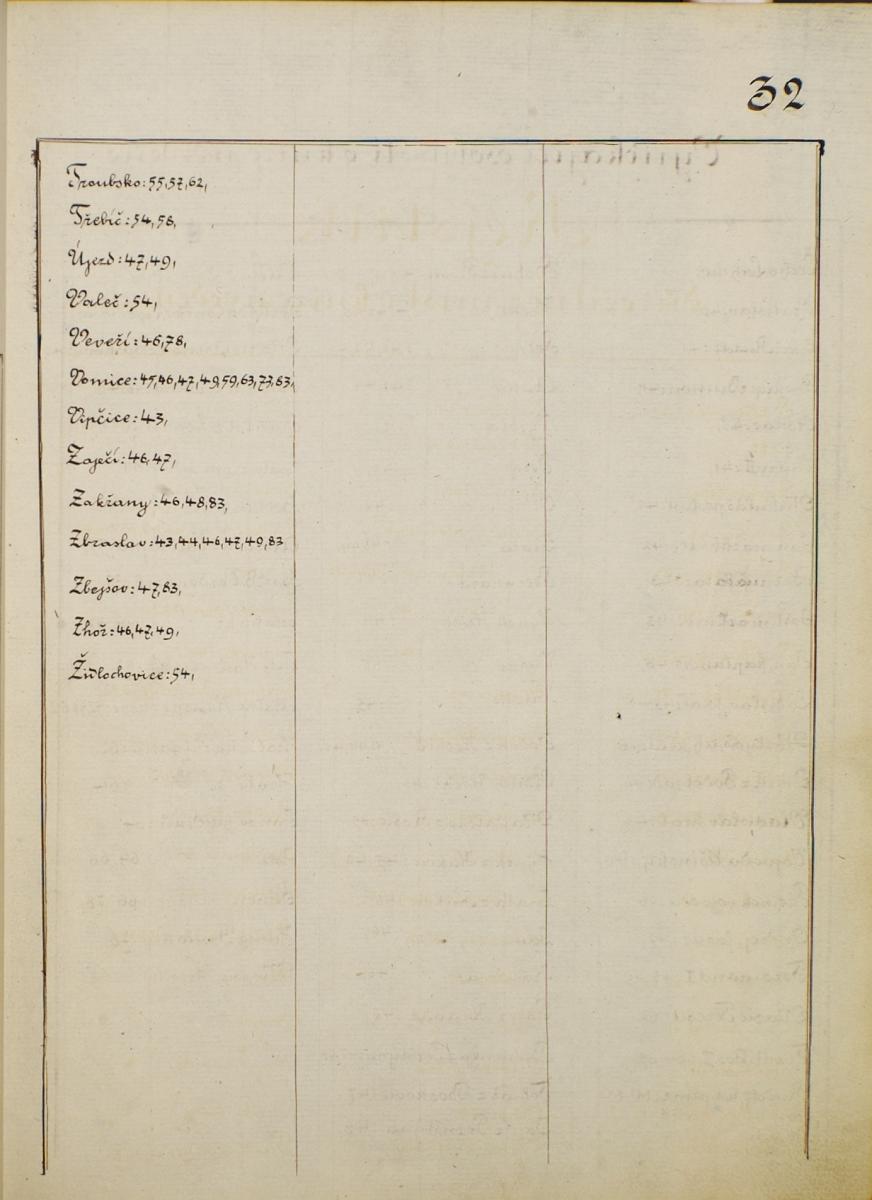 32
Troubsko: 55, 57, 62,
Třebíč: 54, 58,
Újezd: 47, 49,
Valeč: 54,
Veveří: 46, 78,
Vomice: 45, 46, 47, 49, 59, 63, 77, 83,
Vipčice: 43,
Zaječí: 46, 47,
Zakřany: 46, 48, 83,
Zbraslav: 43, 44, 46, 47, 49, 83
Zbejšov: 47, 83,
Zhoř: 46, 47, 49,
Židlochovice: 54,